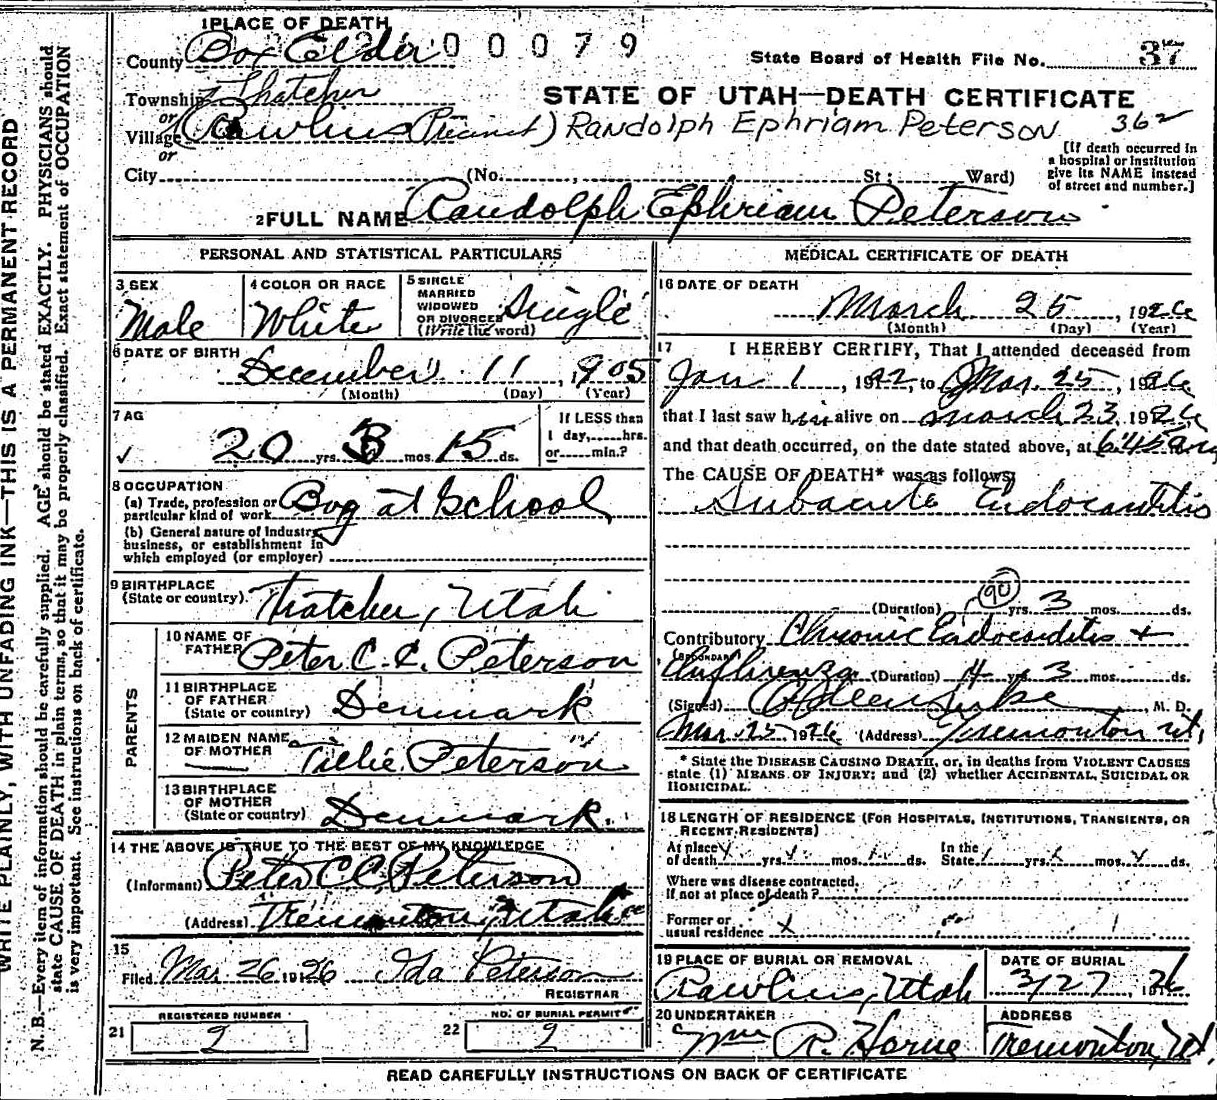 1 PLACE OF DEATH
County Box Elder
00079
State Board of Health File No. 37
Township Thatcher
or
Village (Rawlins Precinct)
or
City (No. , St; Ward)
STATE OF UTAH—DEATH CERTIFICATE
Randolph Ephriam Peterson 362
[If death occurred in
a hospital or institution
give its NAME instead
of street and number.]
2 FULL NAME Randolph Ephriam Peterson
PERSONAL AND STATISTICAL PARTICULARS
3 SEX
Male
4 COLOR OR RACE
White
5 SINGLE
MARRIED
WIDOWED
OR DIVORCED
(Write the word)
Single
6 DATE OF BIRTH
December 11, 1905
(Month) (Day) (Year)
7 AG
20 yrs. 3 mos. 15 ds.
If LESS than
1 day, hrs.
or min.?
8 OCCUPATION
(a) Trade, profession or
particular kind of work
Boy at School
(b) General nature of Industry,
business, or establishment in
which employed (or employer)
9 BIRTHPLACE
(State or country)
Thatcher, Utah
PARENTS
10 NAME OF
FATHER
Peter C. C. Peterson
11 BIRTHPLACE
OF FATHER
(State or country)
Denmark
12 MAIDEN NAME
OF MOTHER
Tillie Peterson
13 BIRTHPLACE
OF MOTHER
(State or country)
Denmark.
14 THE ABOVE IS TRUE TO THE BEST OF MY KNOWLEDGE
(Informant) Peter C C Peterson
(Address) Tremonton, Utah
15
Filed Mar. 26 1926 Ida Peterson
REGISTRAR
21 REGISTERED NUMBER
2
22 NO. OF BURIAL PERMIT
2
MEDICAL CERTIFICATE OF DEATH
16 DATE OF DEATH
March 25, 1926
(Month) (Day) (Year)
17 I HEREBY CERTIFY, That I attended deceased from
Jan 1, 1922 to Mar. 25, 1926
that I last saw him alive on March 23, 1926
and that death occurred, on the date stated above, at 6:45 am
The CAUSE OF DEATH* was as follows:
Subacute Endocarditis
90
(Duration) yrs. 3 mos. ds.
Contributory Chronic Endocarditis +
(SECONDARY)
Influenza (Duration) 4 yrs 3 mos. ds.
(Signed) M. D.
Mar 25 1926 (Address) Tremonton Ut.
* State the DISEASE CAUSING DEATH, or, in deaths from VIOLENT CAUSES
state (1) MEANS OF INJURY; and (2) whether ACCIDENTAL, SUICIDAL OR
HOMICIDAL.
18 LENGTH OF RESIDENCE (FOR HOSPITALS, INSTITUTIONS, TRANSIENTS, OR
RECENT RESIDENTS)
At place
of death yrs. mos. ds. In the
State yrs. mos. ds.
Where was disease contracted,
If not at place of death?
Former or
usual residence x
19 PLACE OF BURIAL OR REMOVAL
Rawlins, Utah
DATE OF BURIAL
3/27, 1926
20 UNDERTAKER
Wm R. Horne
ADDRESS
Tremonton, Ut.
READ CAREFULLY INSTRUCTIONS ON BACK OF CERTIFICATE
WRITE PLAINLY, WITH UNFADING INK—THIS IS A PERMANENT RECORD
N. B.—Every item of information should be carefully supplied. AGE should be stated EXACTLY. PHYSICIANS should
state CAUSE OF DEATH in plain terms, so that it may be properly classified. Exact statement of OCCUPATION
is very important. See instructions on back of certificate.